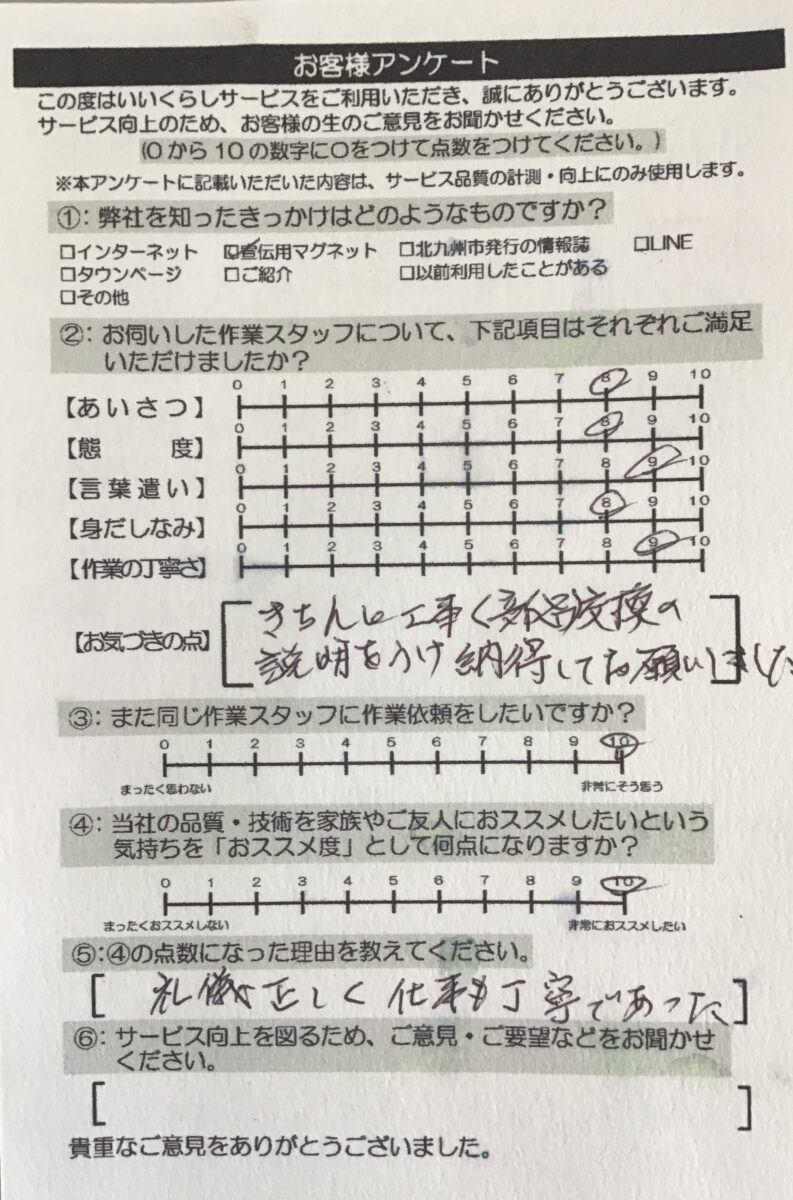 お客様アンケート
この度はいいくらしサービスをご利用いただき、誠にありがとうございます。
サービス向上のため、お客様の生のご意見をお聞かせください。
(0から10の数字に○をつけて点数をつけてください。)
※本アンケートに記載いただいた内容は、サービス品質の計測・向上にのみ使用します。
①：弊社を知ったきっかけはどのようなものですか？
□インターネット ☑宣伝用マグネット □北九州市発行の情報誌 □LINE
□タウンページ □ご紹介 □以前利用したことがある
□その他
②：お伺いした作業スタッフについて、下記項目はそれぞれご満足
いただけましたか？
0 1 2 3 4 5 6 7 8 9 10
【あいさつ】
0 1 2 3 4 5 6 7 8 9 10
【態　度】
0 1 2 3 4 5 6 7 8 9 10
【言葉遣い】
0 1 2 3 4 5 6 7 8 9 10
【身だしなみ】
0 1 2 3 4 5 6 7 8 9 10
【作業の丁寧さ】
【お気づきの点】
きちんと工事く部品交換の
説明をうけ納得してお願いしました
③：また同じ作業スタッフに作業依頼をしたいですか？
0 1 2 3 4 5 6 7 8 9 10
まったく思わない 非常にそう思う
④：当社の品質・技術を家族やご友人におススメしたいという
気持ちを「おススメ度」として何点になりますか？
0 1 2 3 4 5 6 7 8 9 10
まったくおススメしない 非常におススメしたい
⑤：④の点数になった理由を教えてください。
[ 礼儀正しく仕事も丁寧であった ]
⑥：サービス向上を図るため、ご意見・ご要望などをお聞かせ
ください。
貴重なご意見をありがとうございました。